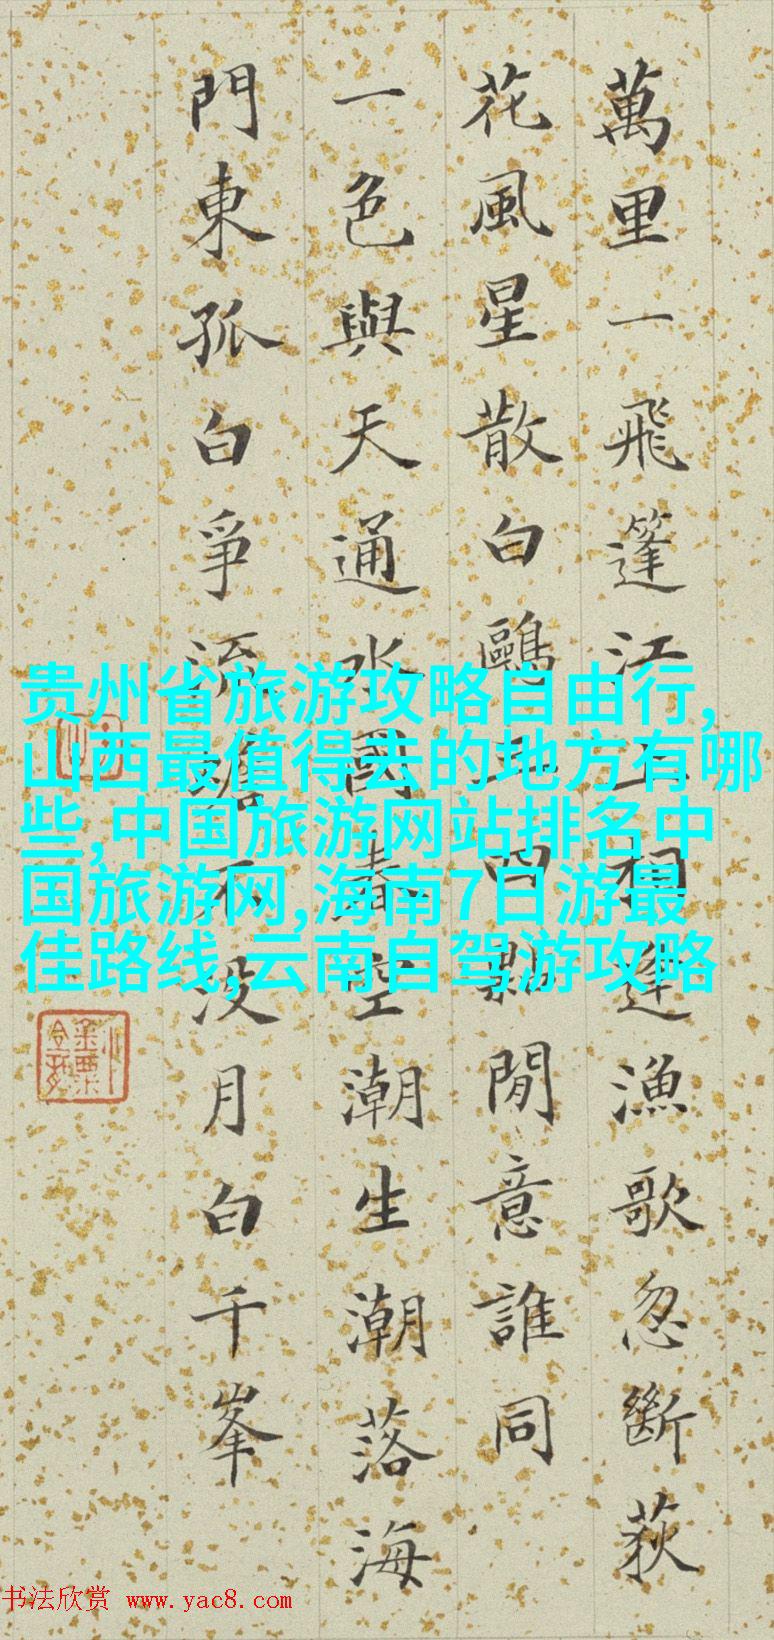 萬里一飛篷江上相逢漁歌忽斷荻
花風星散白鷗三四點閒意誰同
一色與天通水國春空潮生潮落海
門東孤白爭流蟾不没月白千峯
贵州省旅游攻略自由行,
山西最值得去的地方有哪
些,中国旅游网站排名中
国旅游网,海南7日游最
佳路线,云南自驾游攻略
书法欣赏 www.yac8.com